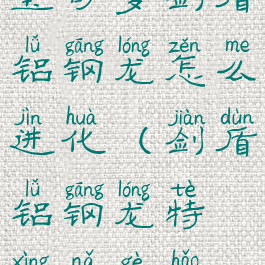 宝可梦剑盾
lǚ gāng lóng zěn me
铝钢龙怎么
jìn huà jiàn dùn
进化（剑盾
lǚ gāng lóng tè
铝钢龙特
xìng nǎ gè hǎo